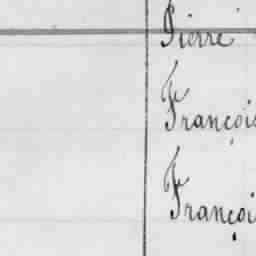 Pierre
François
Françoi